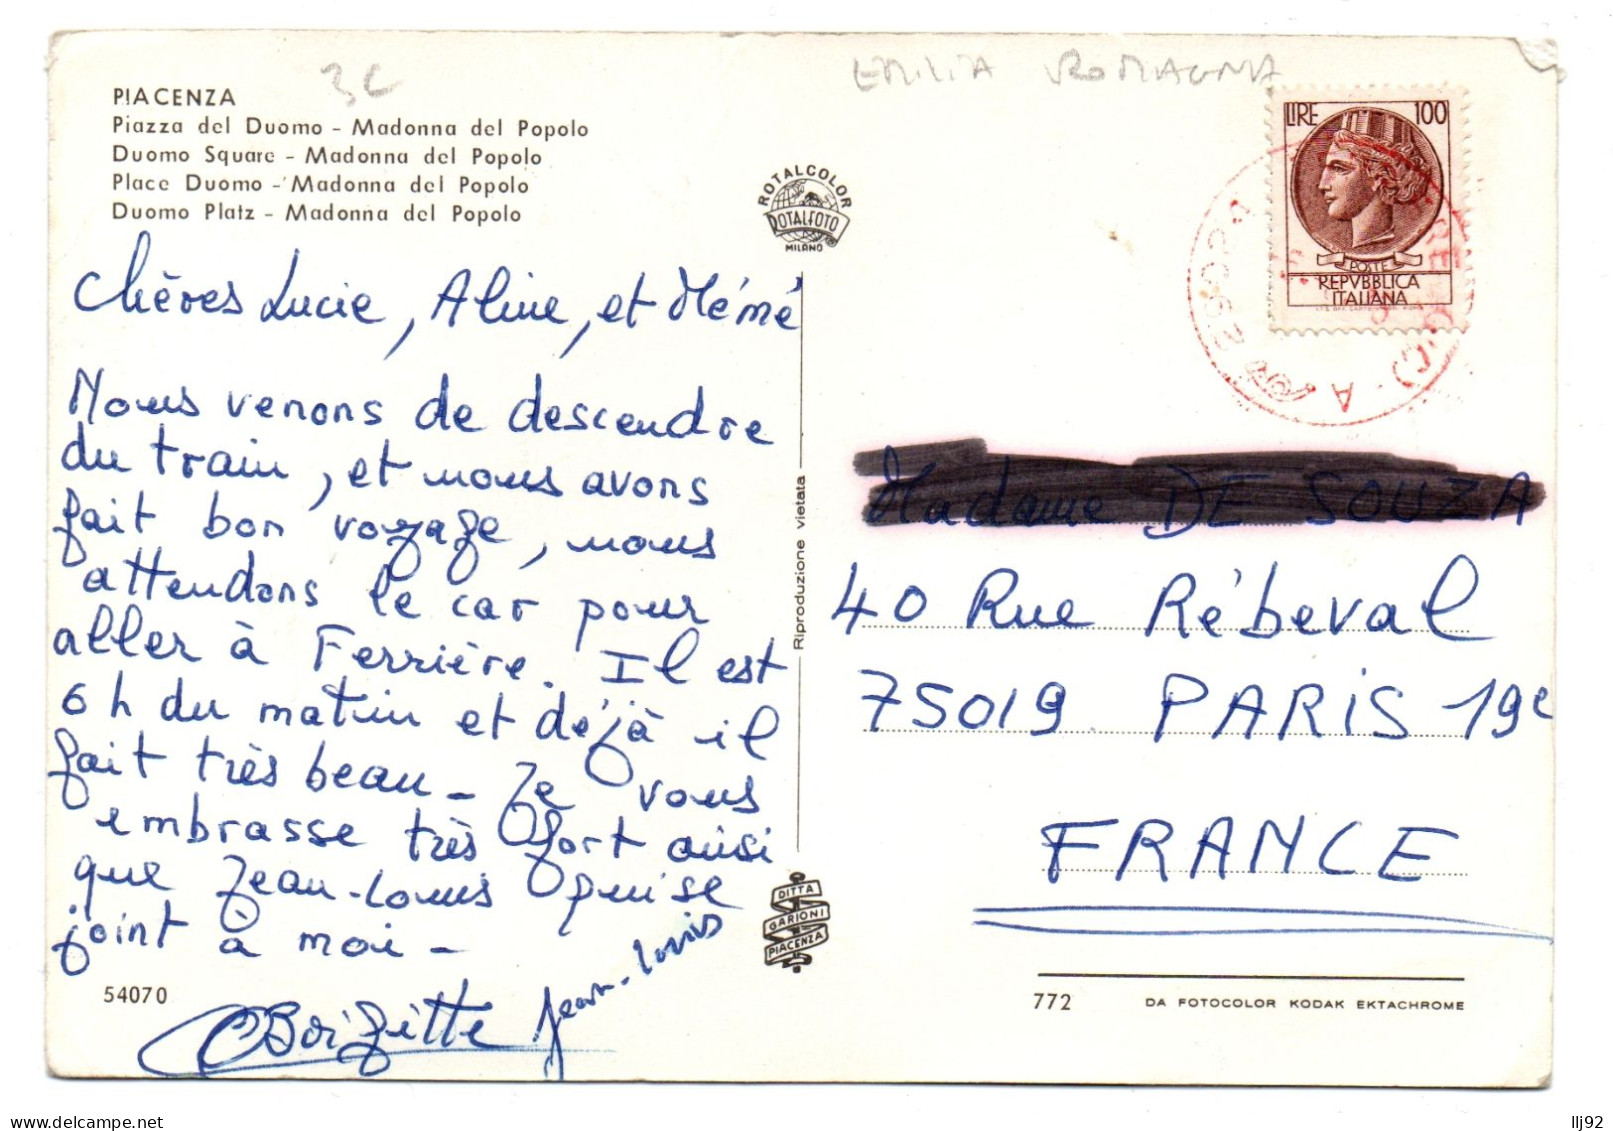 EMILIA ROMAGNA
3C
PIACENZA
Piazza del Duomo - Madonna del Popolo
Duomo Square - Madonna del Popolo
Place Duomo - Madonna del Popolo
Duomo Platz - Madonna del Popolo
ROTALCOLOR
ROTALFOTO
MILANO
LIRE 100
POSTE
REPVBBLICA
ITALIANA
Chères Lucie, Aline, et Mémé
Nous venons de descendre
du train, et nous avons
fait bon voyage, nous
attendons le car pour
aller à Ferrière. Il est
6 h du matin et déjà il
fait très beau - Je vous
embrasse très fort ainsi
que Jean-Louis qui se
joint à moi -
Brigitte Jean-Louis
54070
Riproduzione vietata
DITTA
GARIONI
PIACENZA
Madame DE SOUZA
40 Rue Rébeval
75019 PARIS 19e
FRANCE
772 DA FOTOCOLOR KODAK EKTACHROME
www.delcampe.net
llj92